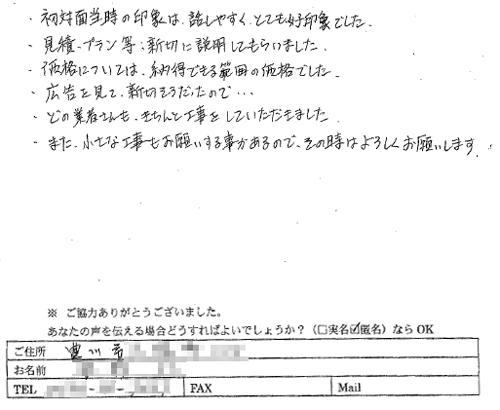 ・初対面当時の印象は、話しやすく、とても好印象でした。
・見積・プラン等、新切に説明してもらいました。
・価格については、納得できる範囲の価格でした。
・広告を見て、新切そうだったので・・・
・どの業者さんも、きちんと工事をしていただきました。
・また、小さな工事もお願いする事があるので、その時はよろしくお願いします。
※ ご協力ありがとうございました。
あなたの声を伝える場合どうすればよいでしょうか？（□実名☑匿名）なら OK
ご住所 豊川市
お名前
TEL FAX Mail